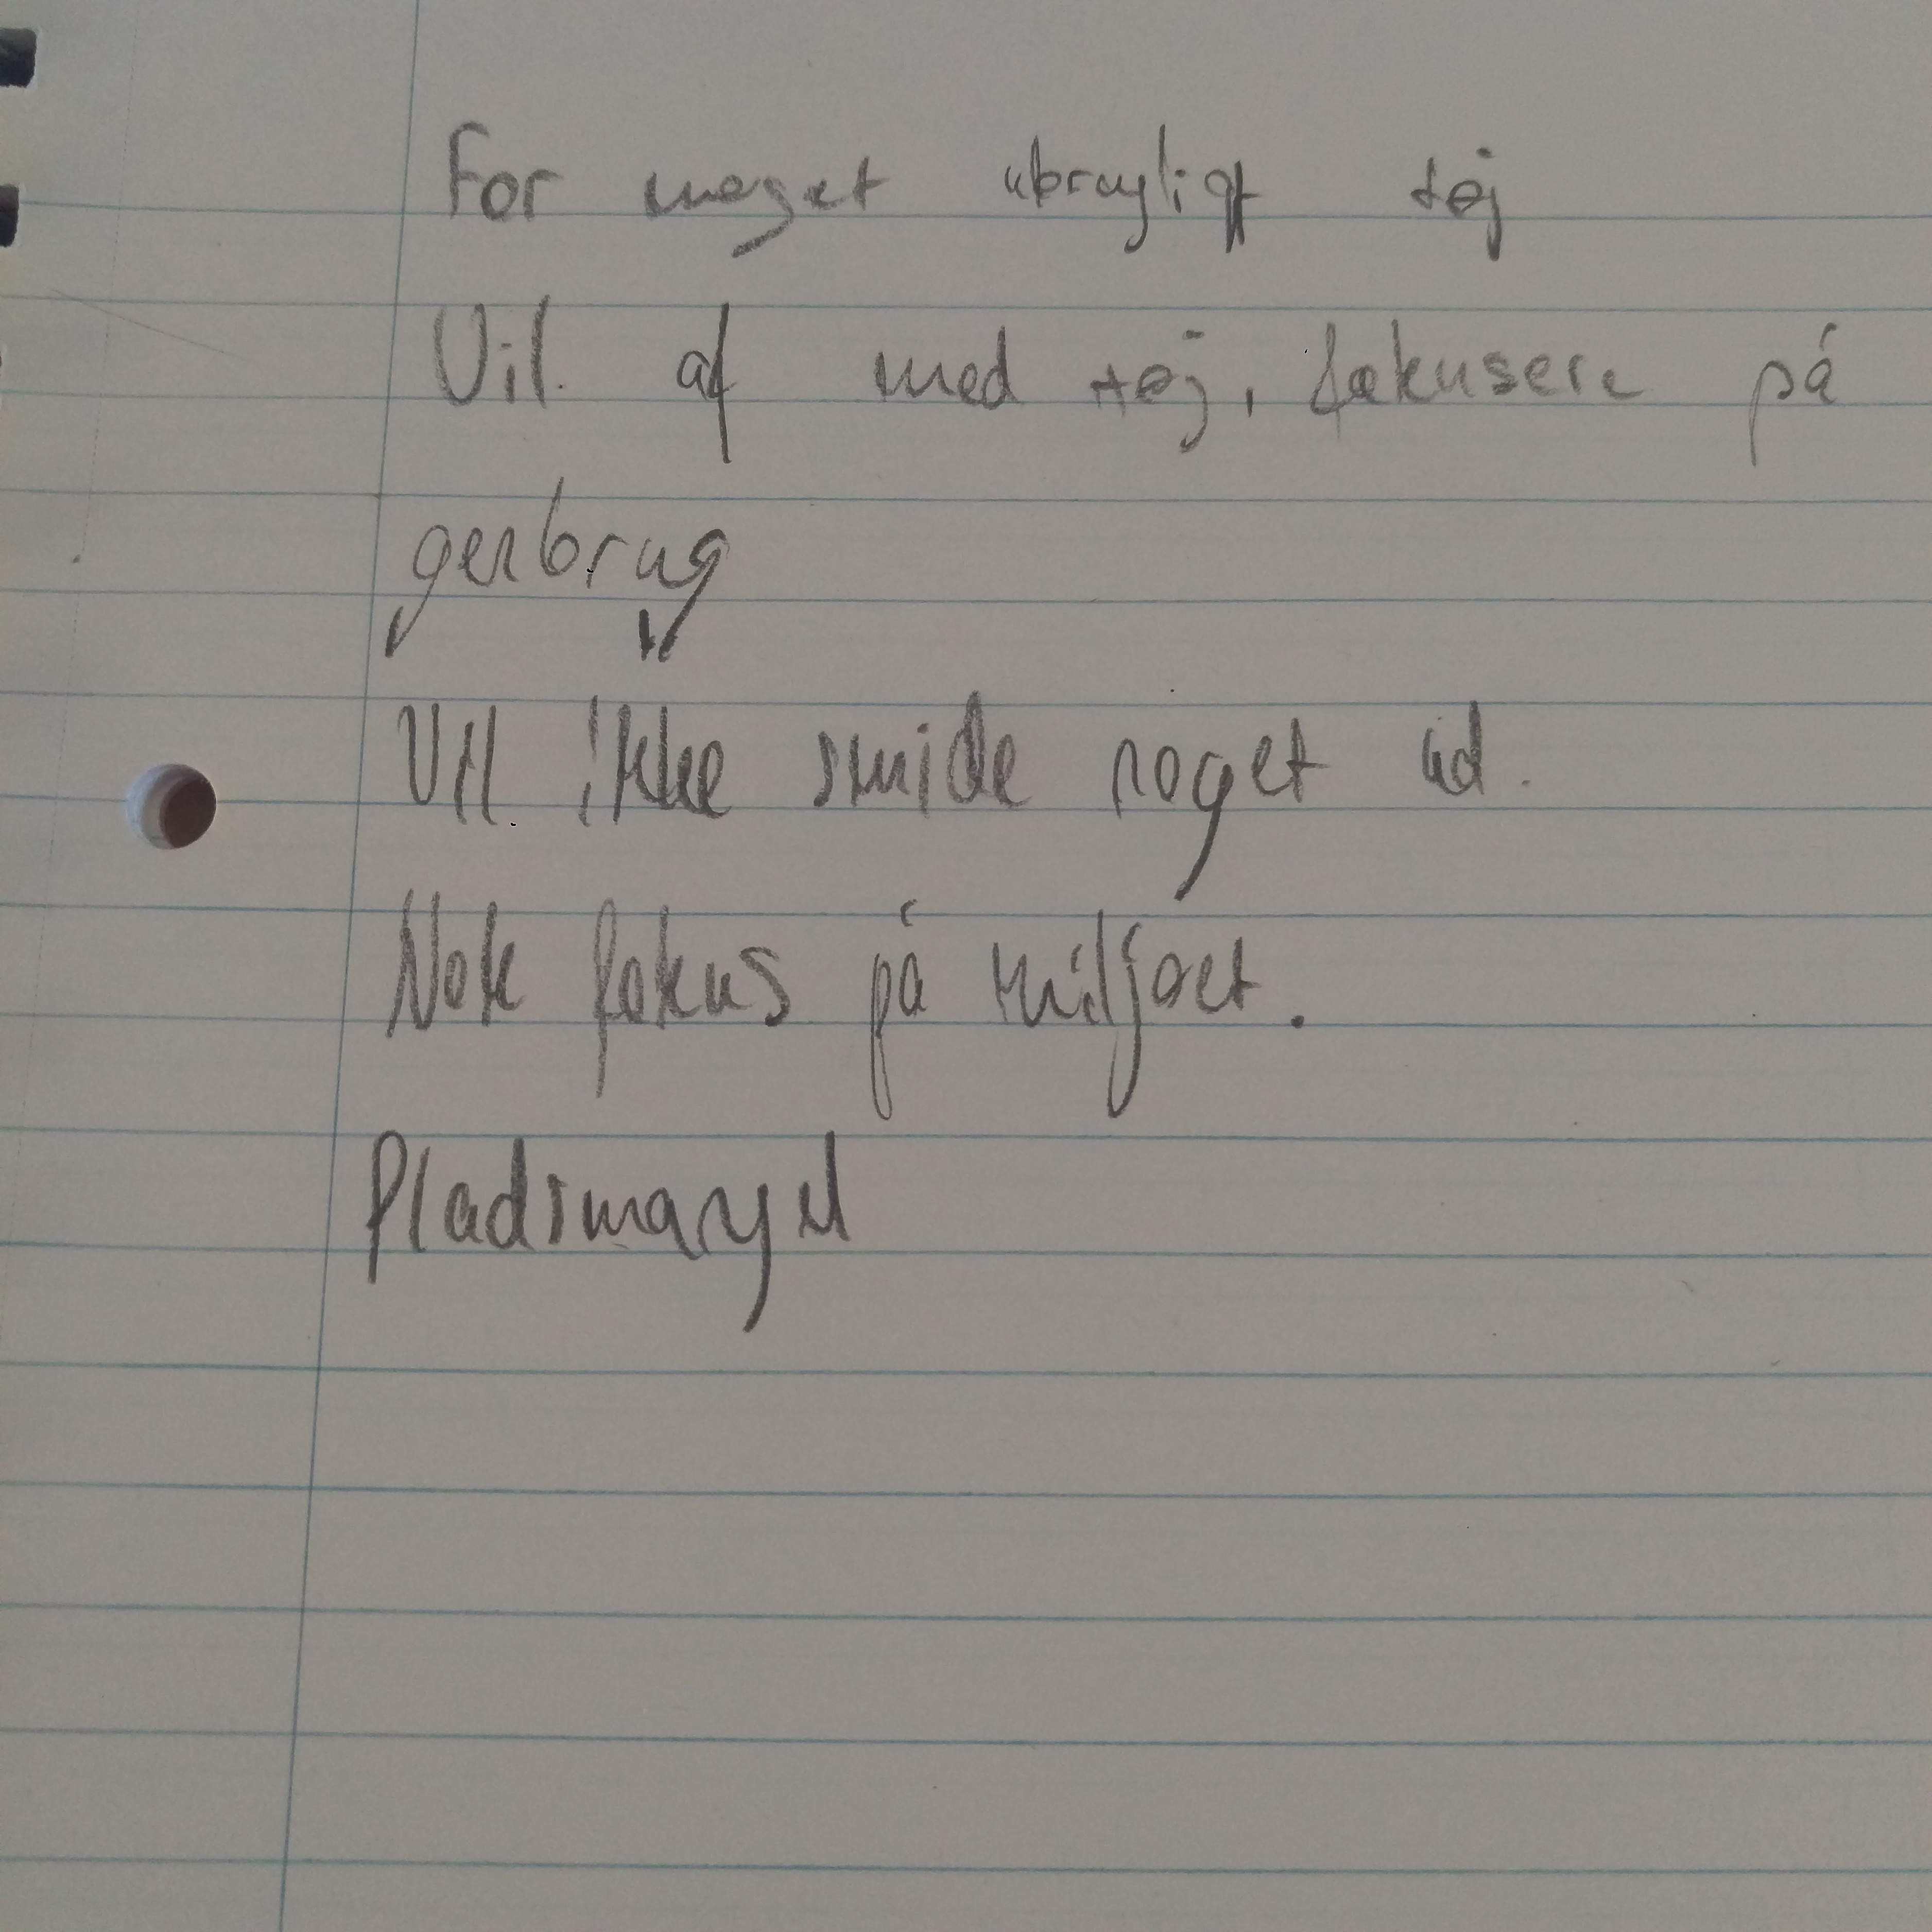 For meget ubrugligt tøj
Vil af med tøj, fokusere på
genbrug
Vil ikke smide noget ud.
Nok fokus på miljøet.
Pladsmangel